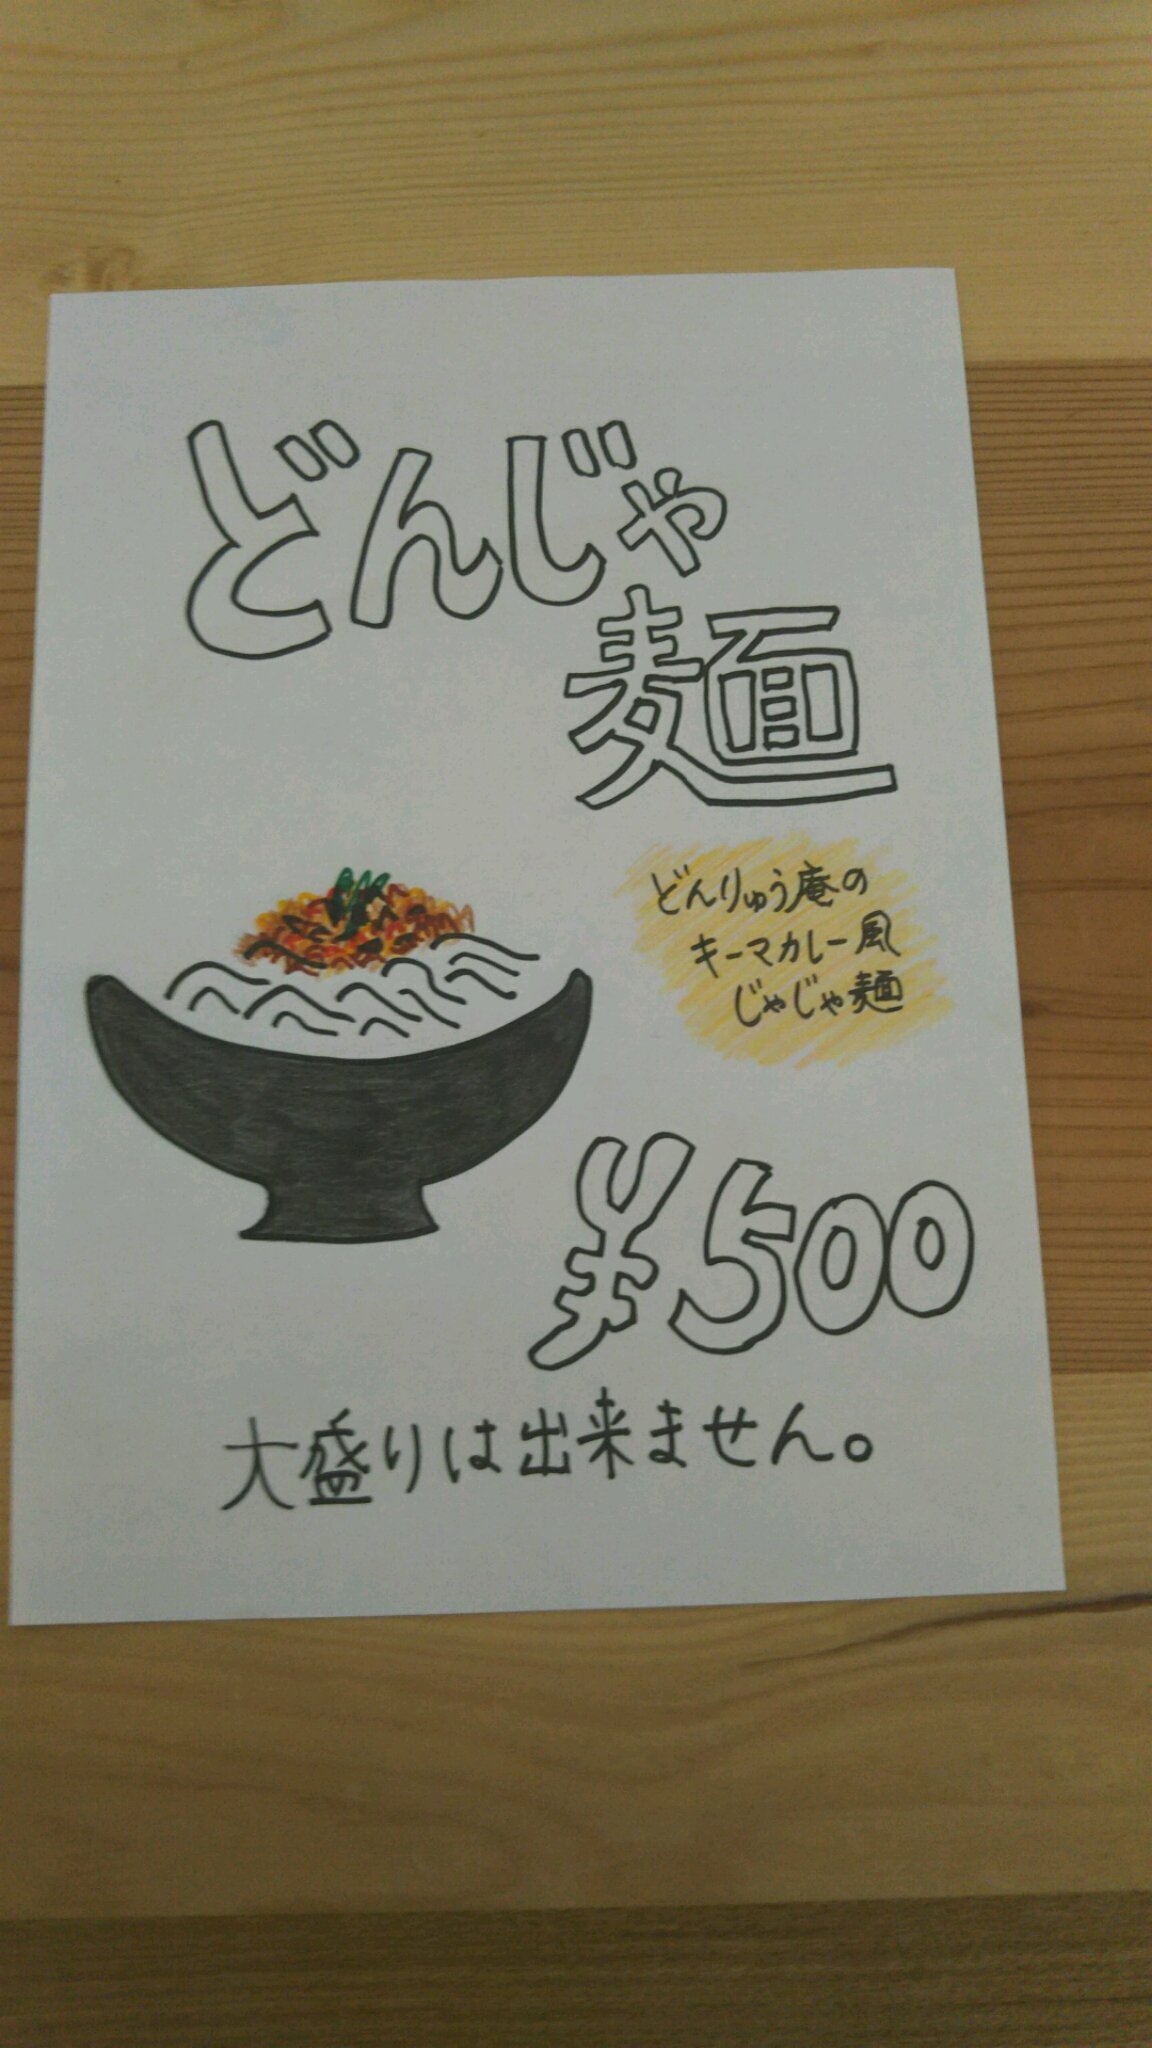 どんじゃ
麺
どんりゅう庵の
キーマカレー風
じゃじゃ麺
¥500
大盛りは出来ません。